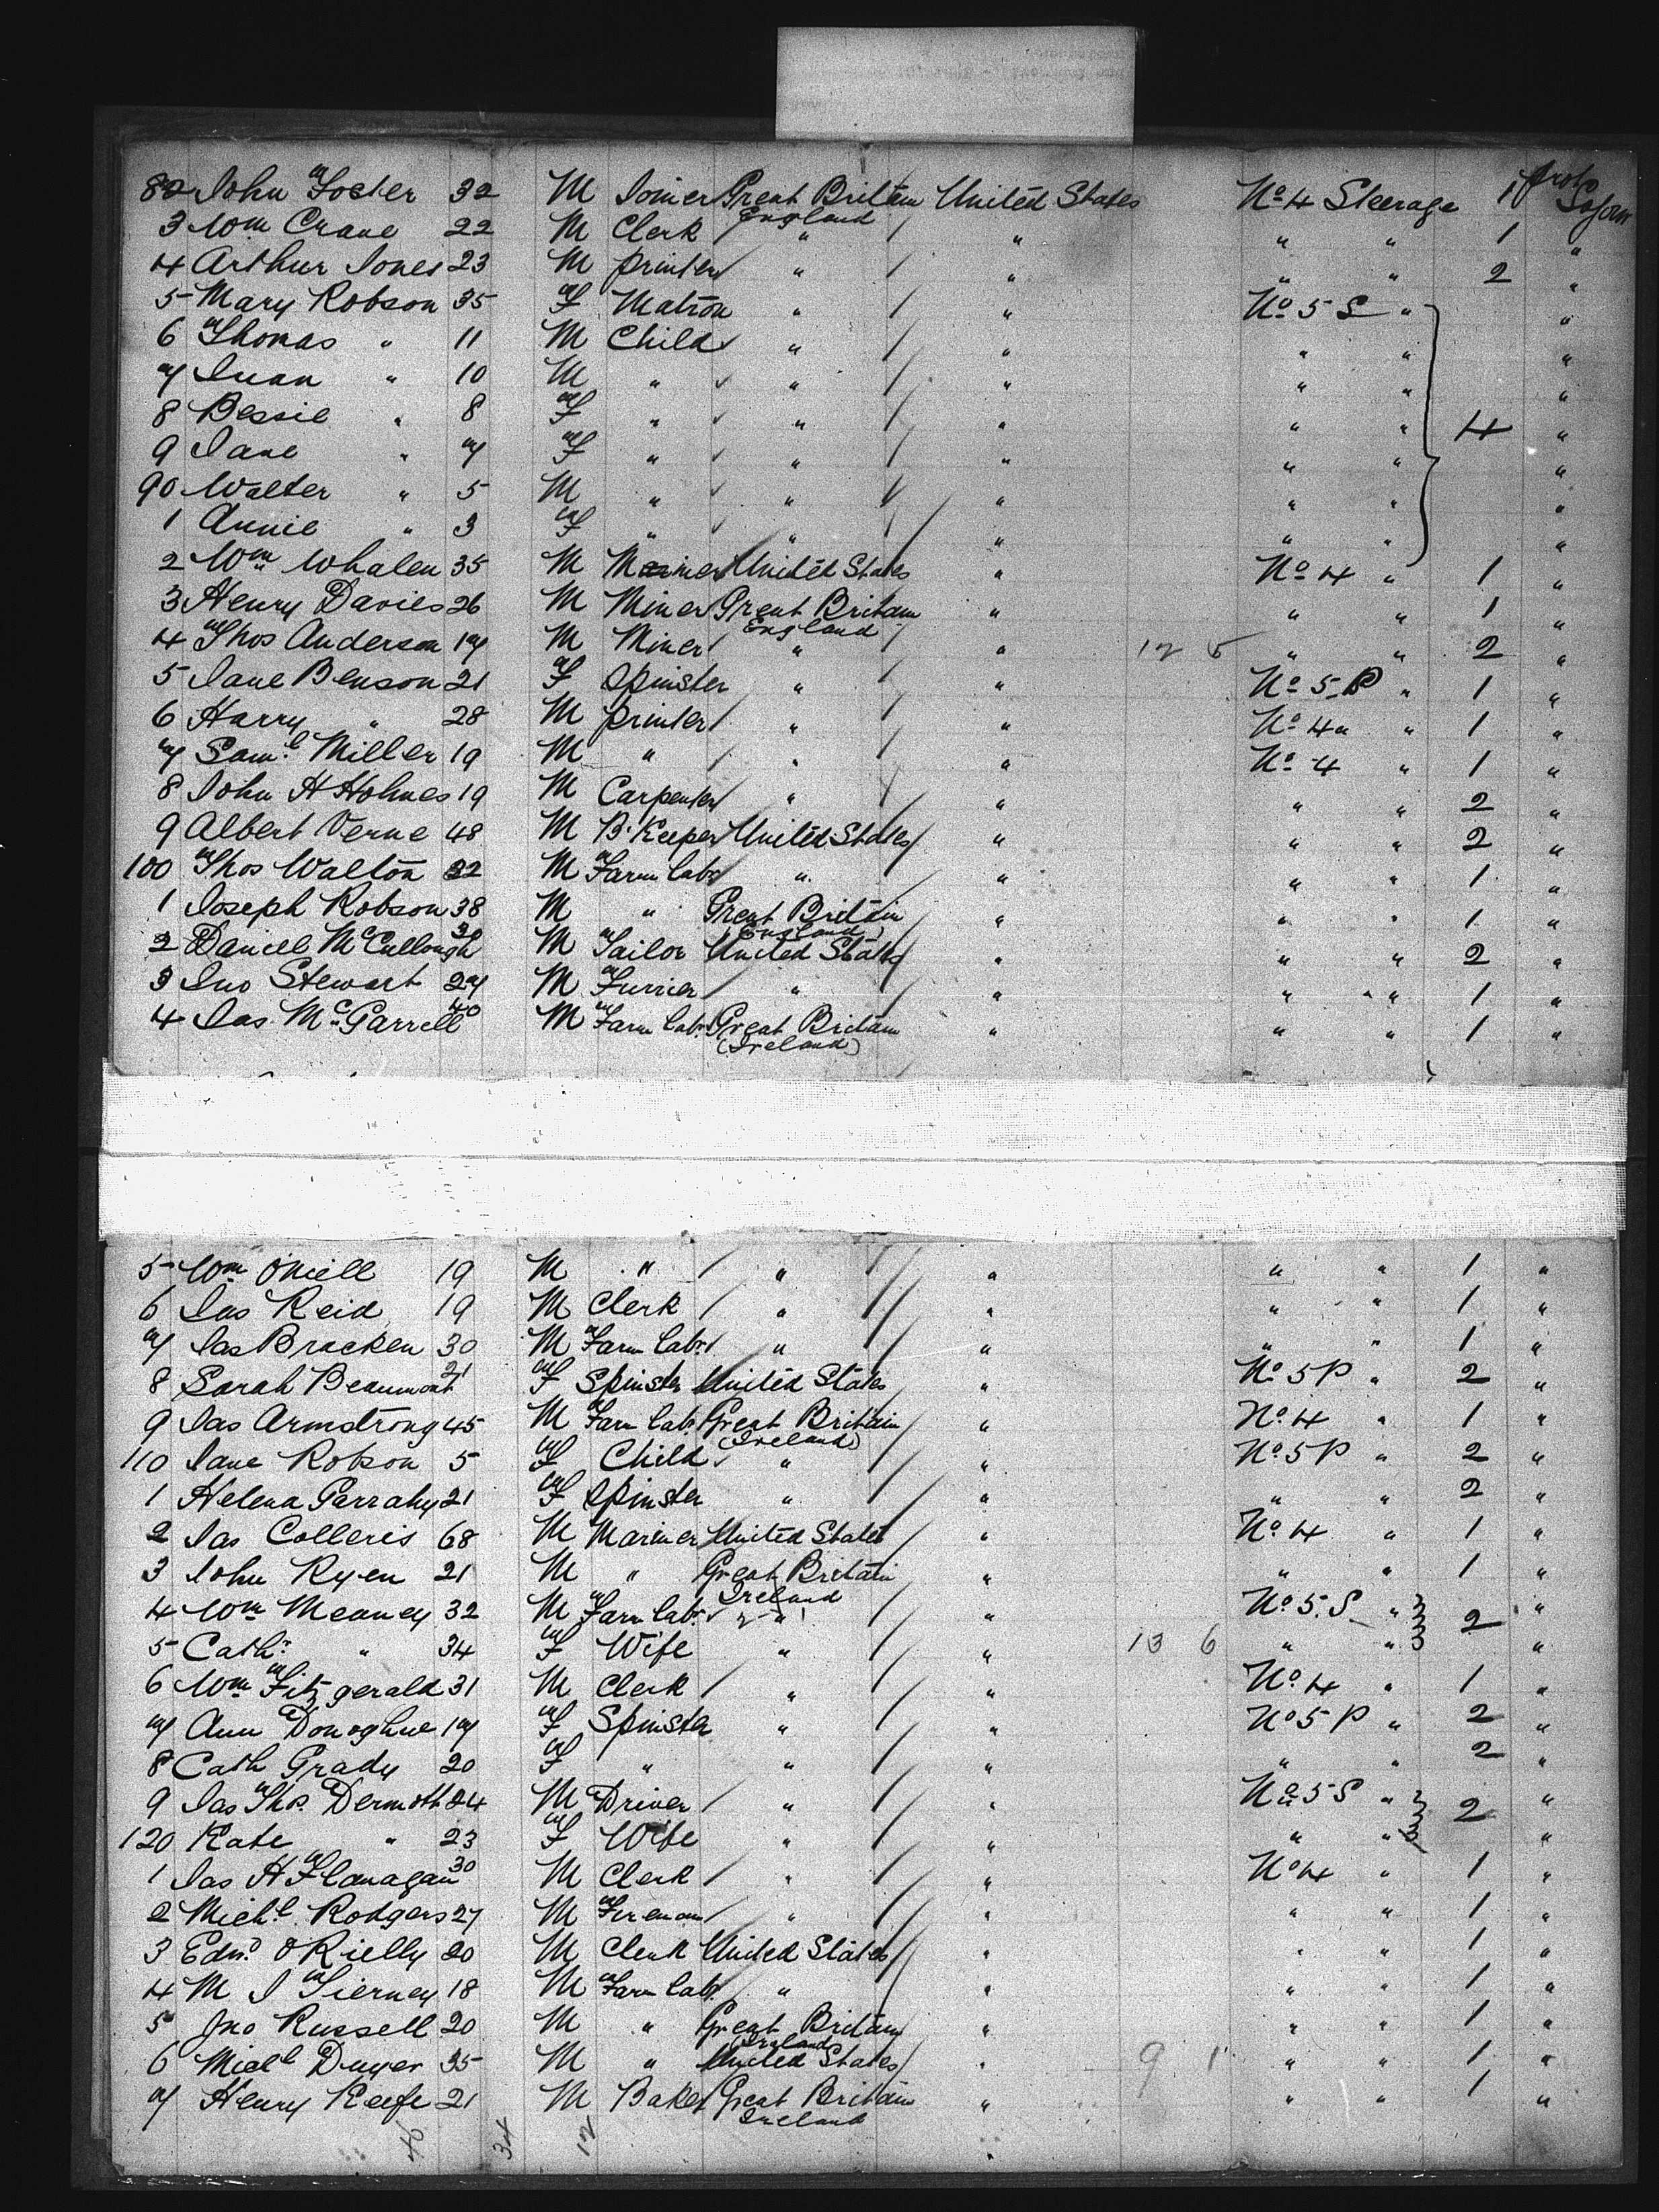 82 John Foster 32 M Joiner Great Britain United States No 4 Steerage 1 prot Sojourn
England
3 Wm Crane 22 M Clerk " " " " 1 "
4 Arthur Jones 23 M printer " " " " 2 "
5 Mary Robson 35 F Matron " " No 5 S " "
6 Thomas " 11 M Child " " " " "
7 Juan " 10 M " " " " " "
8 Bessie " 8 F " " " " " 4 "
9 Jane " 7 F " " " " " "
90 Walter " 5 M " " " " " "
1 Annie " 3 F " " " " " "
2 Wm Whalen 35 M Mariner United States " No 4 " 1 "
3 Henry Davies 26 M Miner Great Britain " " " 1 "
England
4 Thos Anderson 17 M Miner " " 12 5 " " 2 "
5 Jane Benson 21 F Spinster " " No 5 P " 1 "
6 Harry " 28 M printer " " No 4 " " 1 "
7 Saml Miller 19 M " " " No 4 " 1 "
8 John H Holmes 19 M Carpenter " " " " 2 "
9 Albert Verne 48 M B. Keeper United States " " " 2 "
100 Thos Walton 22 M Farm Labr " " " " 1 "
1 Joseph Robson 38 M " Great Britain " " " 1 "
(England)
2 Daniel McCullough 30 M Tailor United States " " " 2 "
3 Jno Stewart 27 M Furrier " " " " 1 "
4 Jas. McGarrell 40 M Farm Labr Great Britain " " " 1 "
(Ireland)
5 Wm ONiell 19 M " " " " " 1 "
6 Jas Reid 19 M Clerk " " " " 1 "
7 Jas Bracken 30 M Farm Labr " " " " 1 "
8 Sarah Beaumont 21 F Spinster United States " No 5 P " 2 "
9 Jas Armstrong 45 M Farm Labr Great Britain " No 4 " 1 "
(Ireland)
110 Jane Robson 5 F Child " " No 5 P " 2 "
1 Helena Garrahy 21 F Spinster " " " " 2 "
2 Jas Colleris 68 M Mariner United States " No 4 " 1 "
3 John Ryen 21 M " Great Britain " " " 1 "
Ireland
4 Wm Meaney 32 M Farm Labr " " No 5. S " 2 "
5 Cath " 34 F Wife " " 13 6 " " "
6 Wm Fitzgerald 31 M Clerk " " No 4 " 1 "
7 Ann Donoghue 17 F Spinster " " No 5 P " 2 "
8 Cath Grady 20 F " " " " " 2 "
9 Jas Thos. Dermoth 24 M Driver " " No 5 S " 2 "
120 Kate " 23 F Wife " " " " "
1 Jas H Flanagan 30 M Clerk " " No 4 " 1 "
2 Michl. Rodgers 27 M Fireman " " " " 1 "
3 Edwd ORielly 20 M Clerk United States " " " 1 "
4 M J Tierney 18 M Farm Labr " " " " 1 "
5 Jno Russell 20 M " Great Britain " " " 1 "
Ireland
6 Michl Dwyer 35 M " United States " 9 1 " " 1 "
7 Henry Keefe 21 M Baker Great Britain " " " 1 "
Ireland
34 12